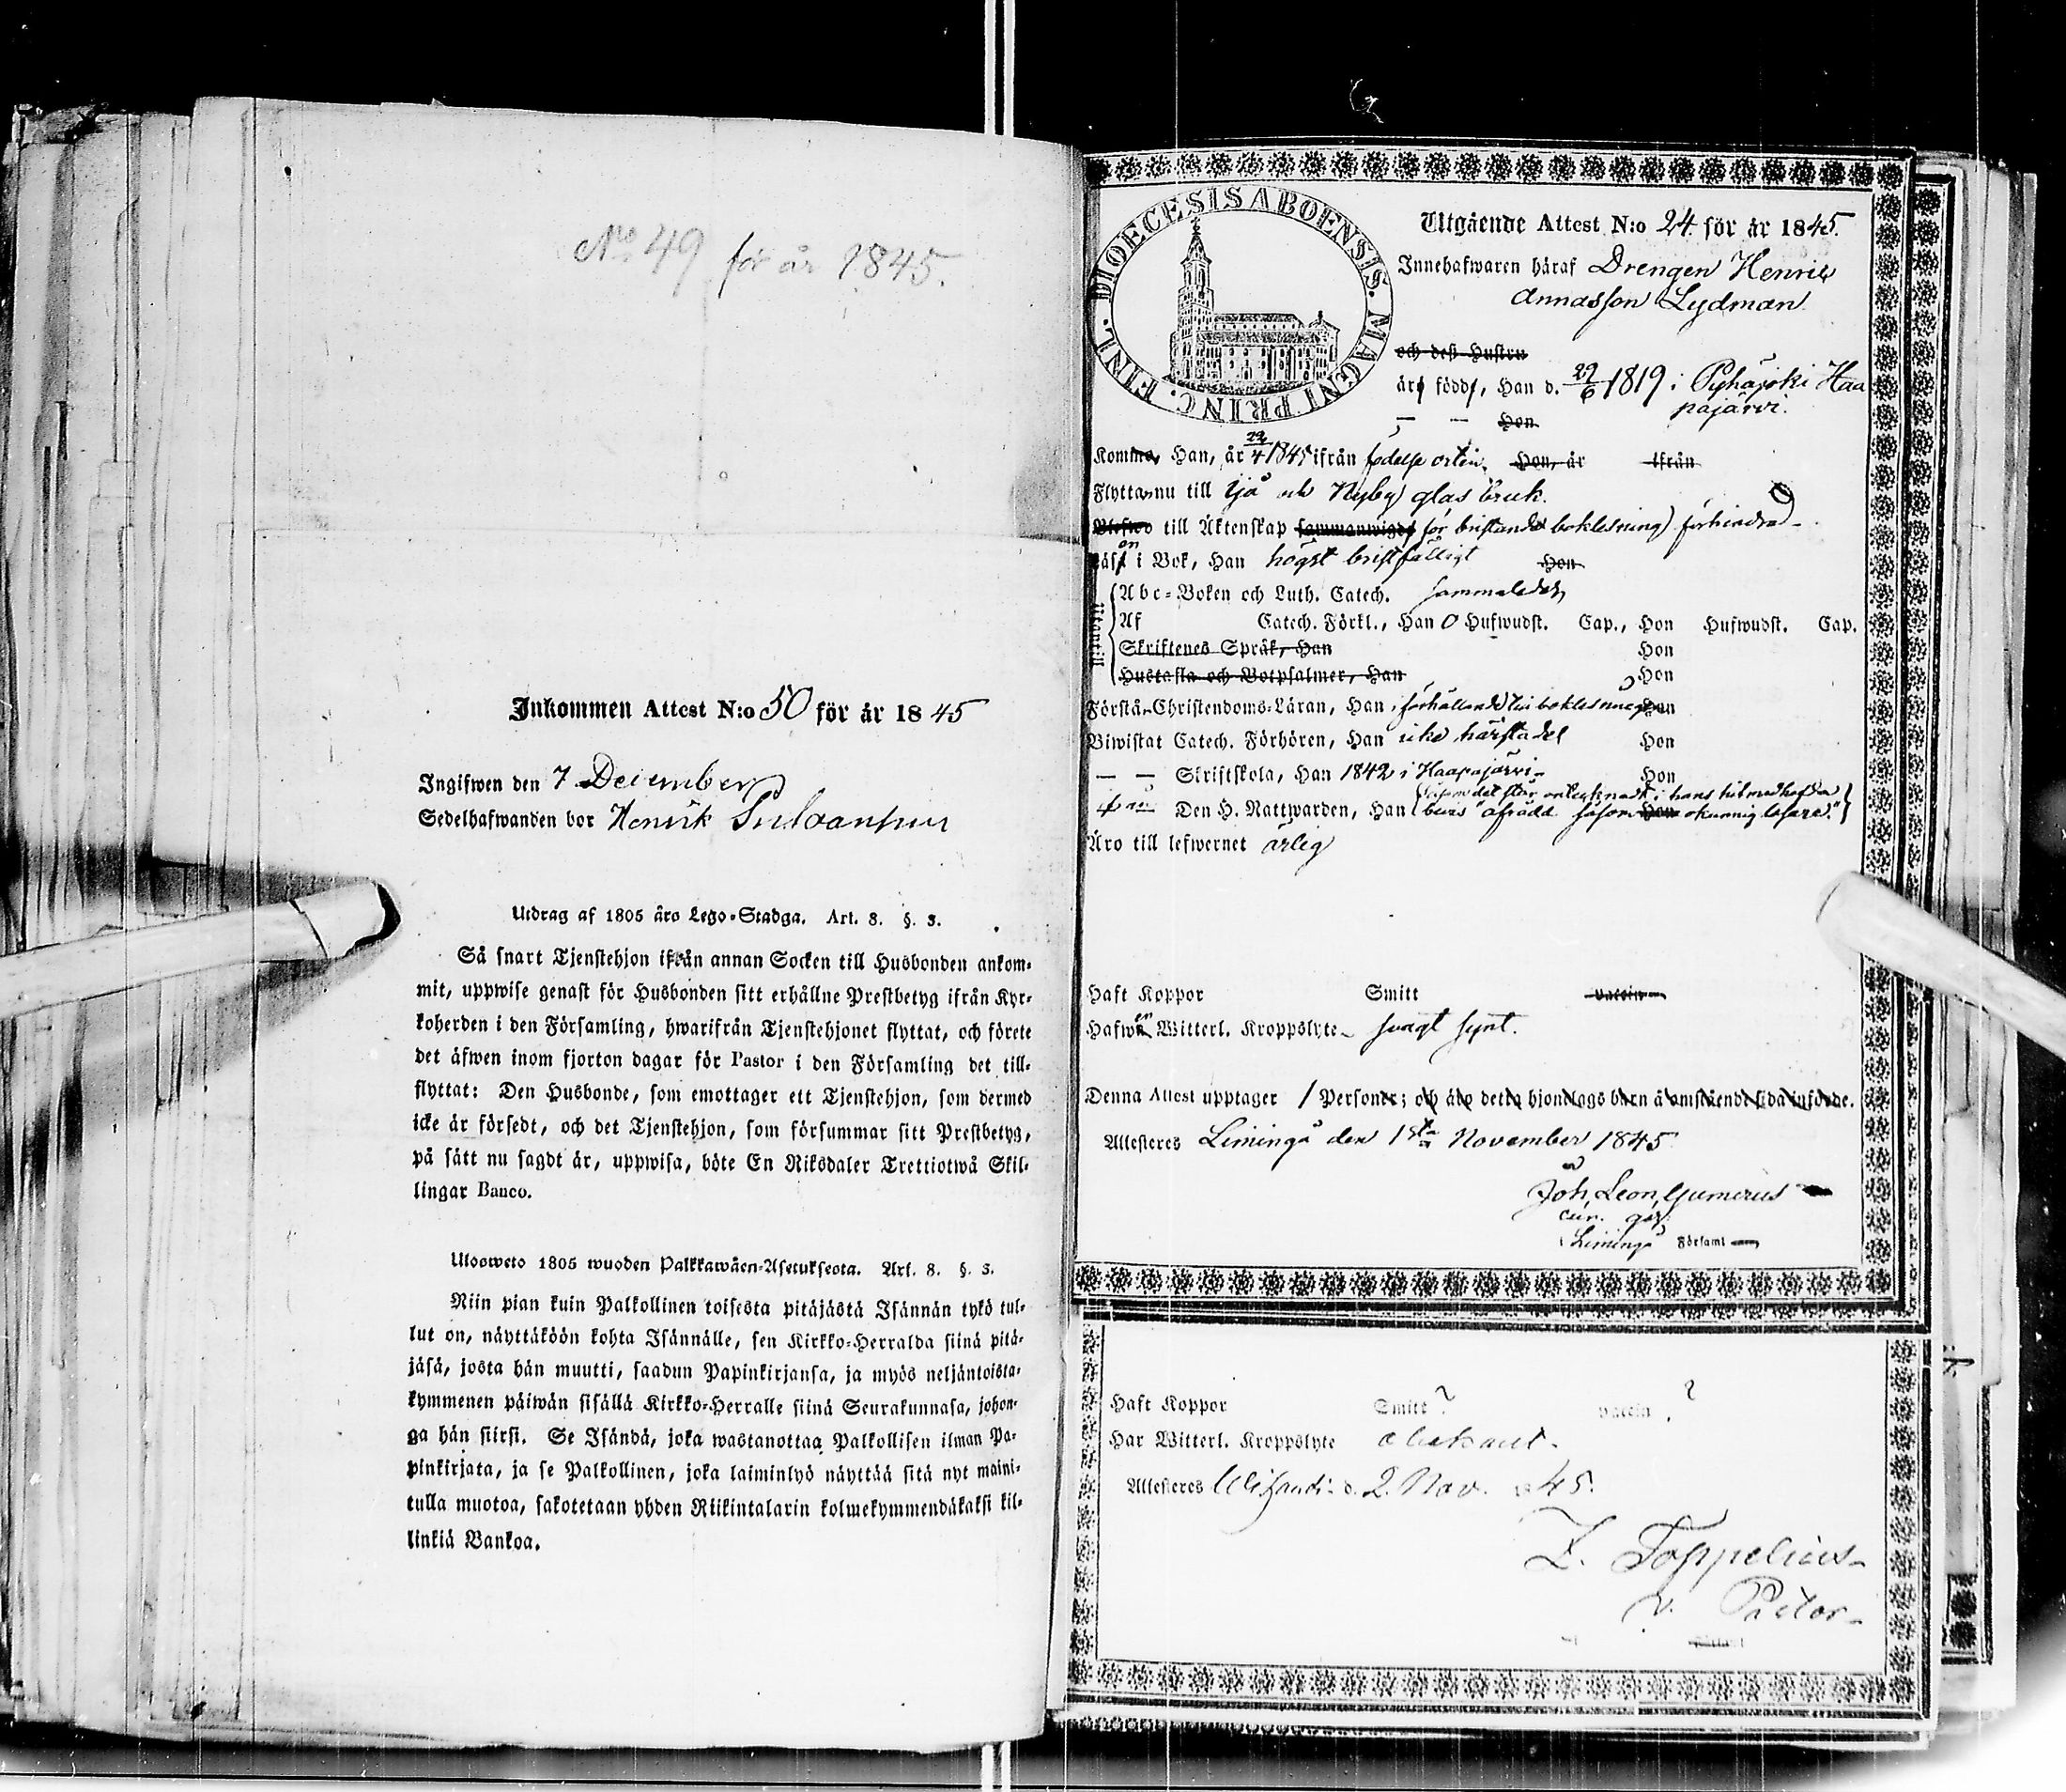 No 49 för år 1845.
Inkommen Attest N:o 50 för år 1845
Ingifwen den 7 December
Sedelhafwanden bor Henrik
Utdrag af 1805 års Lego-Stadga. Art. 8. §. 3.
Så snart Tjenstehjon ifrån annan Socken till Husbonden ankom-
mit, uppwise genast för Husbonden sitt erhållne Prestbetyg ifrån Kyr-
koherden i den Församling, hwarifrån Tjenstehjonet flyttat, och förete
det äfwen inom fjorton dagar för Pastor i den Församling det till-
flyttat: Den Husbonde, som emottager ett Tjenstehjon, som dermed
icke är försedt, och det Tjenstehjon, som försummar sitt Prestbetyg,
på sätt nu sagdt är, uppwisa, böte En Riksdaler Trettiotwå Skil-
lingar Banco.
Ulosweto 1805 wuoden Palkkawäen-Asetuksesta. Art. 8. §. 3.
Niin pian kuin Palkollinen toisesta pitäjästä Isännän tykö tul-
lut on, näyttäköön kohta Isännälle, sen Kirkko-Herralda siinä pitä-
jäsä, josta hän muutti, saadun Papinkirjansa, ja myös neljäntoista-
kymmenen päiwän sisällä Kirkko-Herralle siinä Seurakunnasa, johon-
ga hän siirsi. Se Isändä, joka wastanottaa Palkollisen ilman Pa-
pinkirjata, ja se Palkollinen, joka laiminlyö näyttää sitä nyt maini-
tulla muotoa, sakotetaan yhden Riikintalarin kolmekymmendäkaksi kil-
linkiä Bankoa.
DIOECESIS ABOENSIS. MAGNI PRINC. FINL.
Utgående Attest N:o 24 för år 1845.
Innehafwaren häraf Drengen Henric
Annasson Lydman
och deß Hustru
äro födds, Han d. 29/6 1819 i Pyhäjoki Haa
pajärvi.
— — Hon
Komma, Han, år 22/4 1845 ifrån födelse orten. Hon, år ifrån
Flytta nu till Ijå och Nyby glas bruk.
till Äktenskap sammanwigde för bristande boklesning förhindrad
Läsa i Bok, Han högst bristfälligt Hon
Utantill
Abc-Boken och Luth. Catech. sammaledes
Af Catech. Förkl., Han 0 Hufwudst. Cap., Hon Hufwudst. Cap.
Skriftenes Språk, Han Hon
Hustafla och Botpsalmer, Han Hon
Förstå Christendoms-Läran, Han i förhållande till boklesningen Hon
Biwistat Catech. Förhören, Han icke härstädes Hon
— — Skriftskola, Han 1842 i Haapajärvi Hon
det står antecknadt i hans hit medhafda
Den H. Nattwarden, Han bevis "afrådd såsom Hon okunnig läsare."
Äro till lefwernet ärlig
Haft Koppor Smitt vaccin
Hafwa Witterl. Kroppslyte svagt synt.
Denna Attest upptager 1 Personer; och äro detta hjonelags barn å omstående sida införde.
Attesteres Limingå den 15de November 1845
Joh. Leon. Gumerus
Limingå Församl
Haft Koppor Smitt? vaccin ?
Har Witterl. Kroppslyte obekant.
Attesteres d. 2 Nov. 45.
Z. Toppelius
v. Pastor